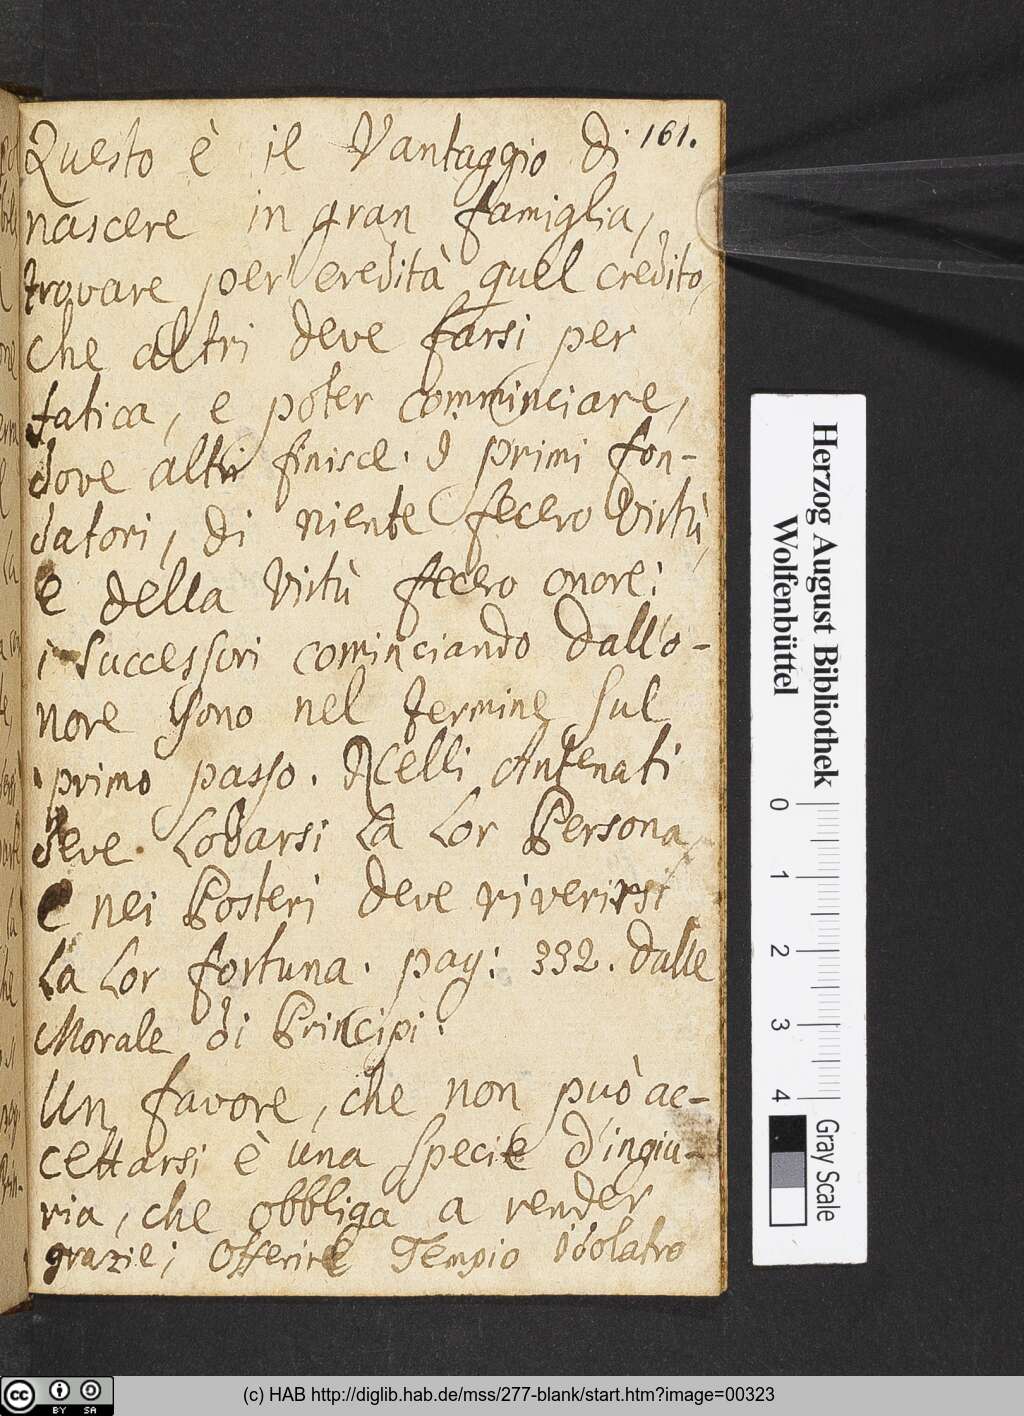 161.
Questo è il Vantaggio di
nascere in gran famiglia,
trovare per eredità quel credito,
che altri deve farsi per
fatica, e poter comminciare,
dove altri finisce. I primi fon-
datori, di niente fecero Virtù,
e della Virtù fecero onore:
i Successori cominciando dall'o-
nore sono nel termine sul
primo passo. Nelli Antenati
deve Lodarsi La Lor Persona,
e nei Posteri deve riverirsi
La Lor fortuna. pag: 332. dalle
Morale di Principi.
Un favore, che non può ac-
cettarsi è una specie d'ingiu-
ria, che obbliga a render
grazie; Offerire Tempio Idolatro
Herzog August Bibliothek
Wolfenbüttel
0 1 2 3 4
Gray Scale
cc BY SA
(c) HAB http://diglib.hab.de/mss/277-blank/start.htm?image=00323